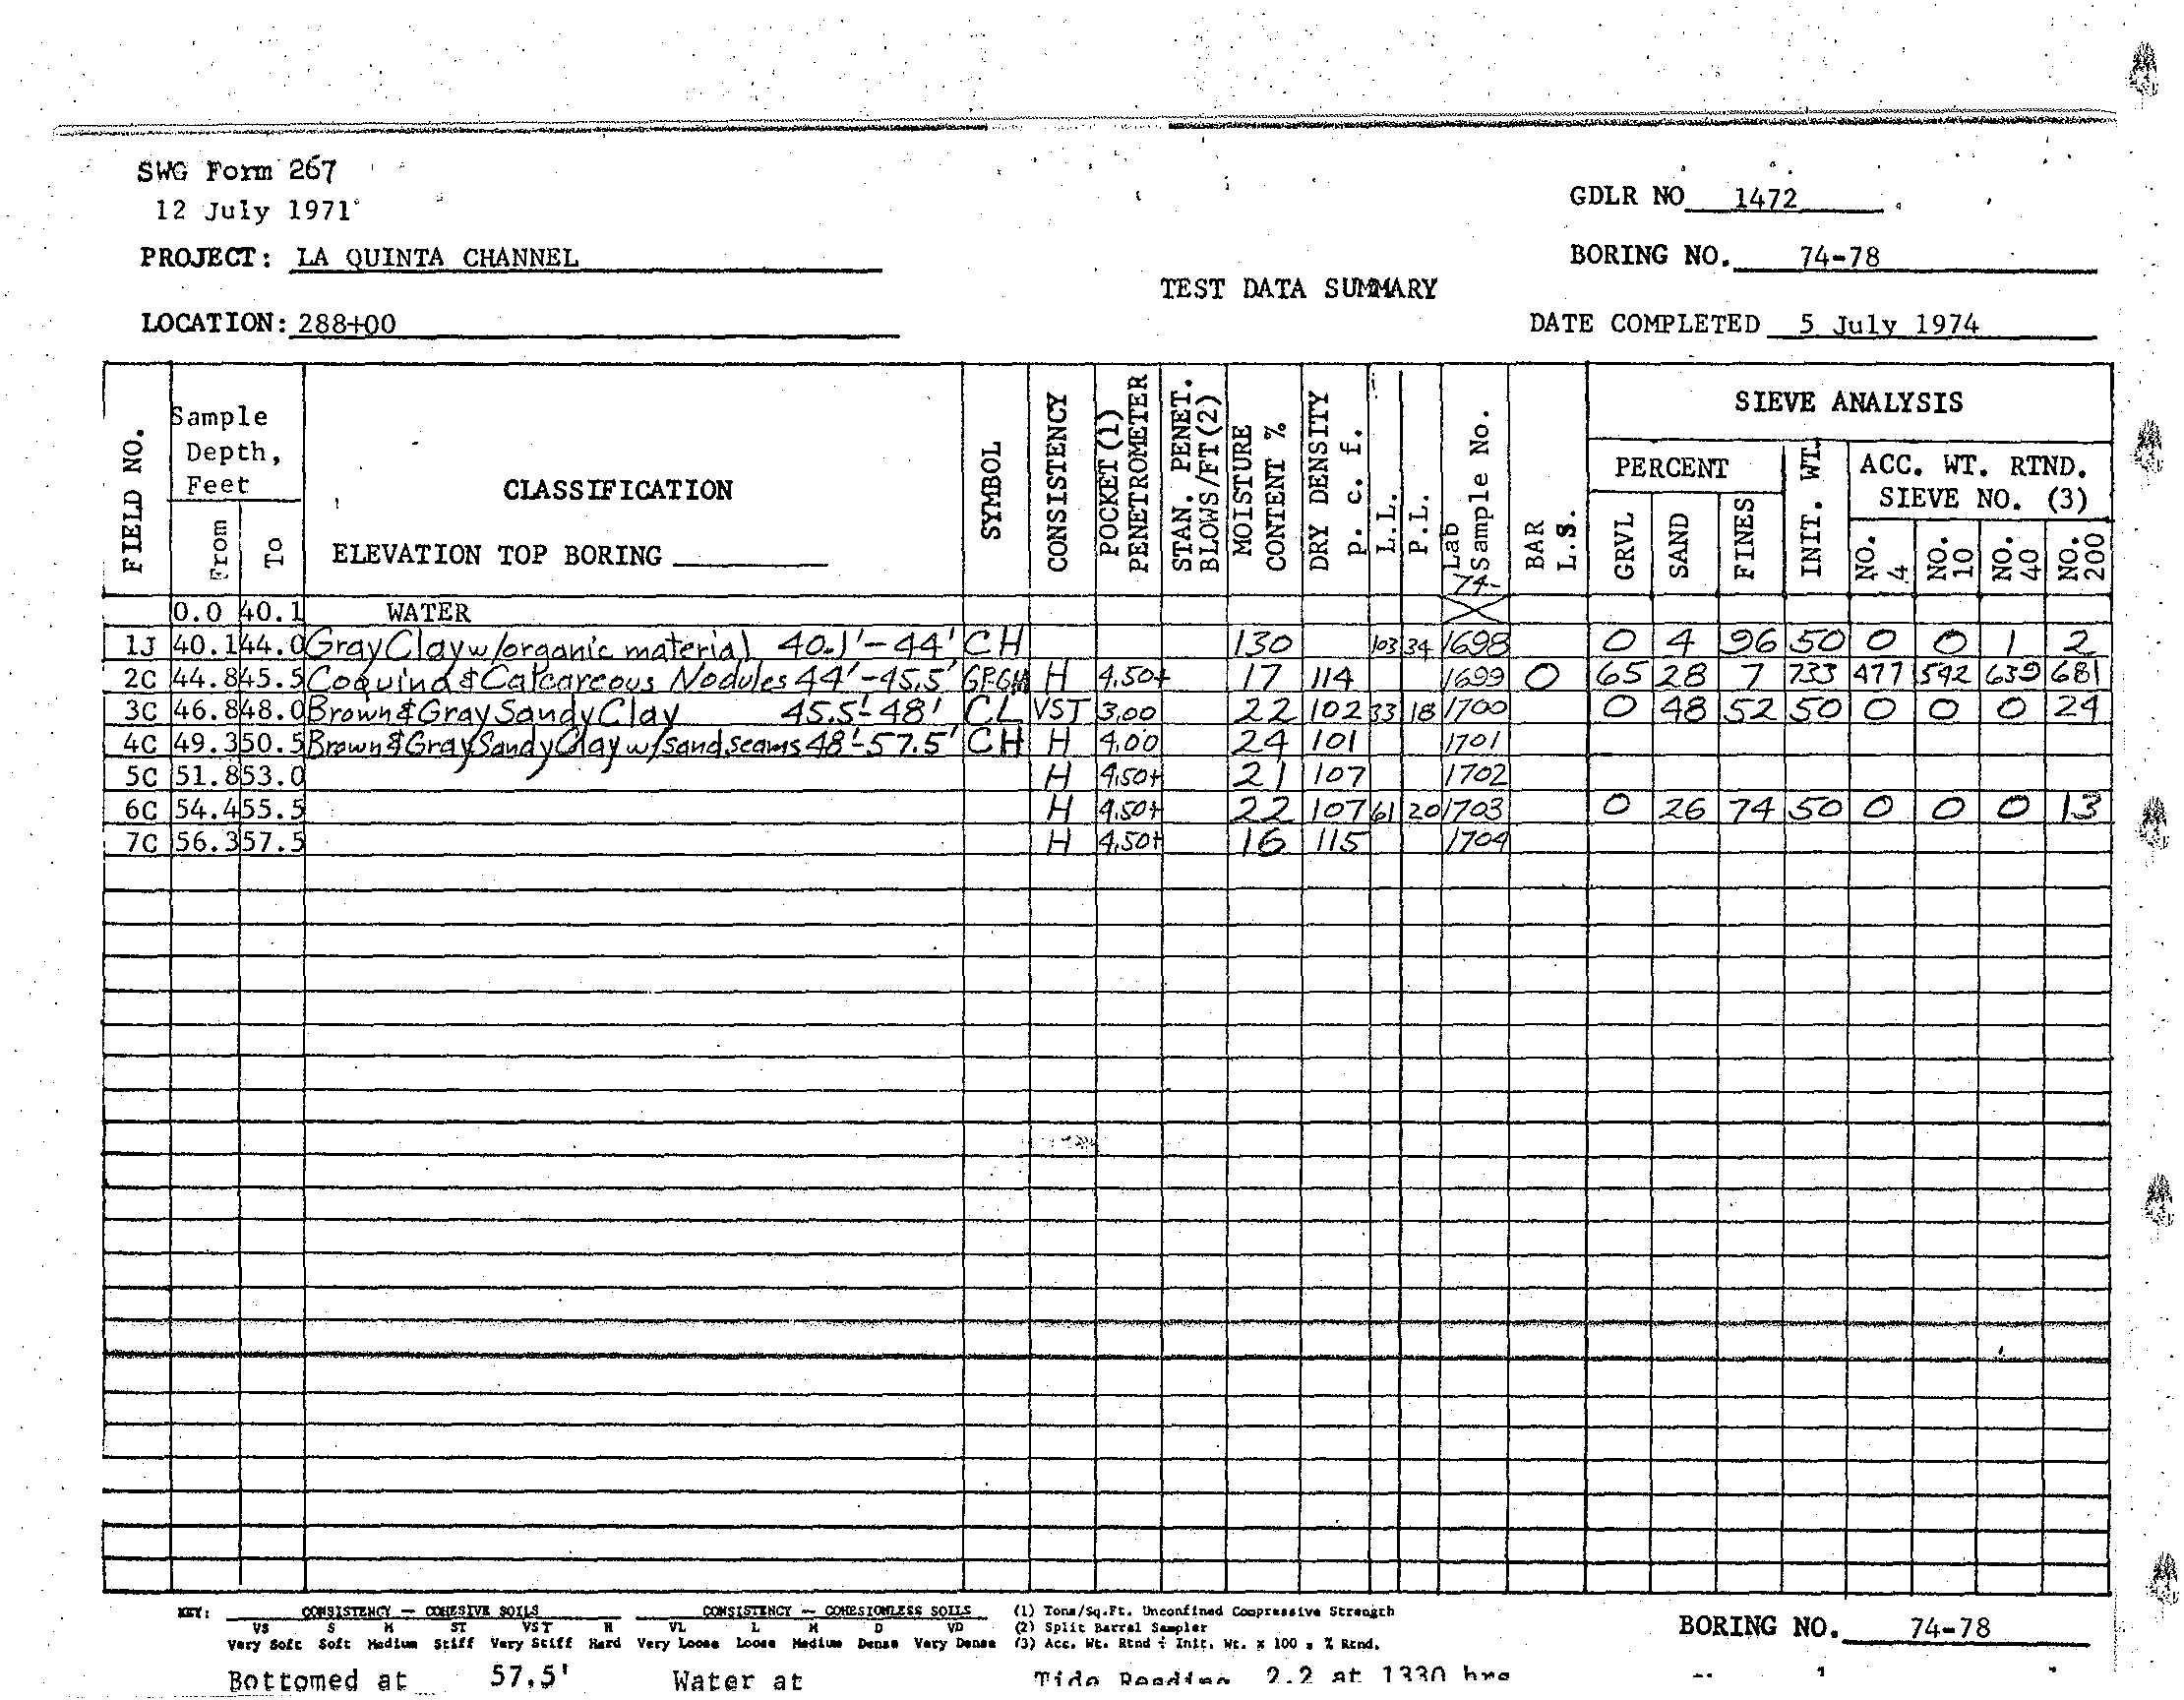 SWG Form 267
12 July 1971
GDLR NO 1472
PROJECT: LA QUINTA CHANNEL
BORING NO. 74-78
TEST DATA SUMMARY
LOCATION: 288+00
DATE COMPLETED 5 July 1974
FIELD NO.
Sample Depth, Feet
From
To
CLASSIFICATION
ELEVATION TOP BORING
SYMBOL
CONSISTENCY
POCKET (1) PENETROMETER
STAN. PENET. BLOWS/FT (2)
MOISTURE CONTENT %
DRY DENSITY p. c. f.
L.L.
P.L.
Lab Sample No.
74-
BAR L.S.
SIEVE ANALYSIS
PERCENT
GRVL
SAND
FINES
INIT. WT.
ACC. WT. RTND.
SIEVE NO. (3)
NO. 4
NO. 10
NO. 40
NO. 200
0.0 40.1 WATER
1J 40.1 44.0 Gray Clay w/organic material 40.1'-44' CH 130 103 34 1698 0 4 96 50 0 0 1 2
2C 44.8 45.5 Coquina & Calcareous Nodules 44'-45.5' GP-GM H 4.50+ 17 114 1699 0 65 28 7 733 477 592 639 681
3C 46.8 48.0 Brown & Gray Sandy Clay 45.5'-48' CL VST 3.00 22 102 33 18 1700 0 48 52 50 0 0 0 24
4C 49.3 50.5 Brown & Gray Sandy Clay w/sand seams 48'-57.5' CH H 4.00 24 101 1701
5C 51.8 53.0 H 4.50+ 21 107 1702
6C 54.4 55.5 H 4.50+ 22 107 61 20 1703 0 26 74 50 0 0 0 13
7C 56.3 57.5 H 4.50+ 16 115 1704
KEY: CONSISTENCY — COHESIVE SOILS CONSISTENCY — COHESIONLESS SOILS (1) Tons/Sq.Ft. Unconfined Compressive Strength
VS S M ST VST H VL L M D VD (2) Split Barrel Sampler
Very Soft Soft Medium Stiff Very Stiff Hard Very Loose Loose Medium Dense Very Dense (3) Acc. Wt. Rtnd ÷ Init. Wt. x 100 = % Rtnd.
BORING NO. 74-78
Bottomed at 57.5' Water at Tide Reading 2.2 at 1330 hrs